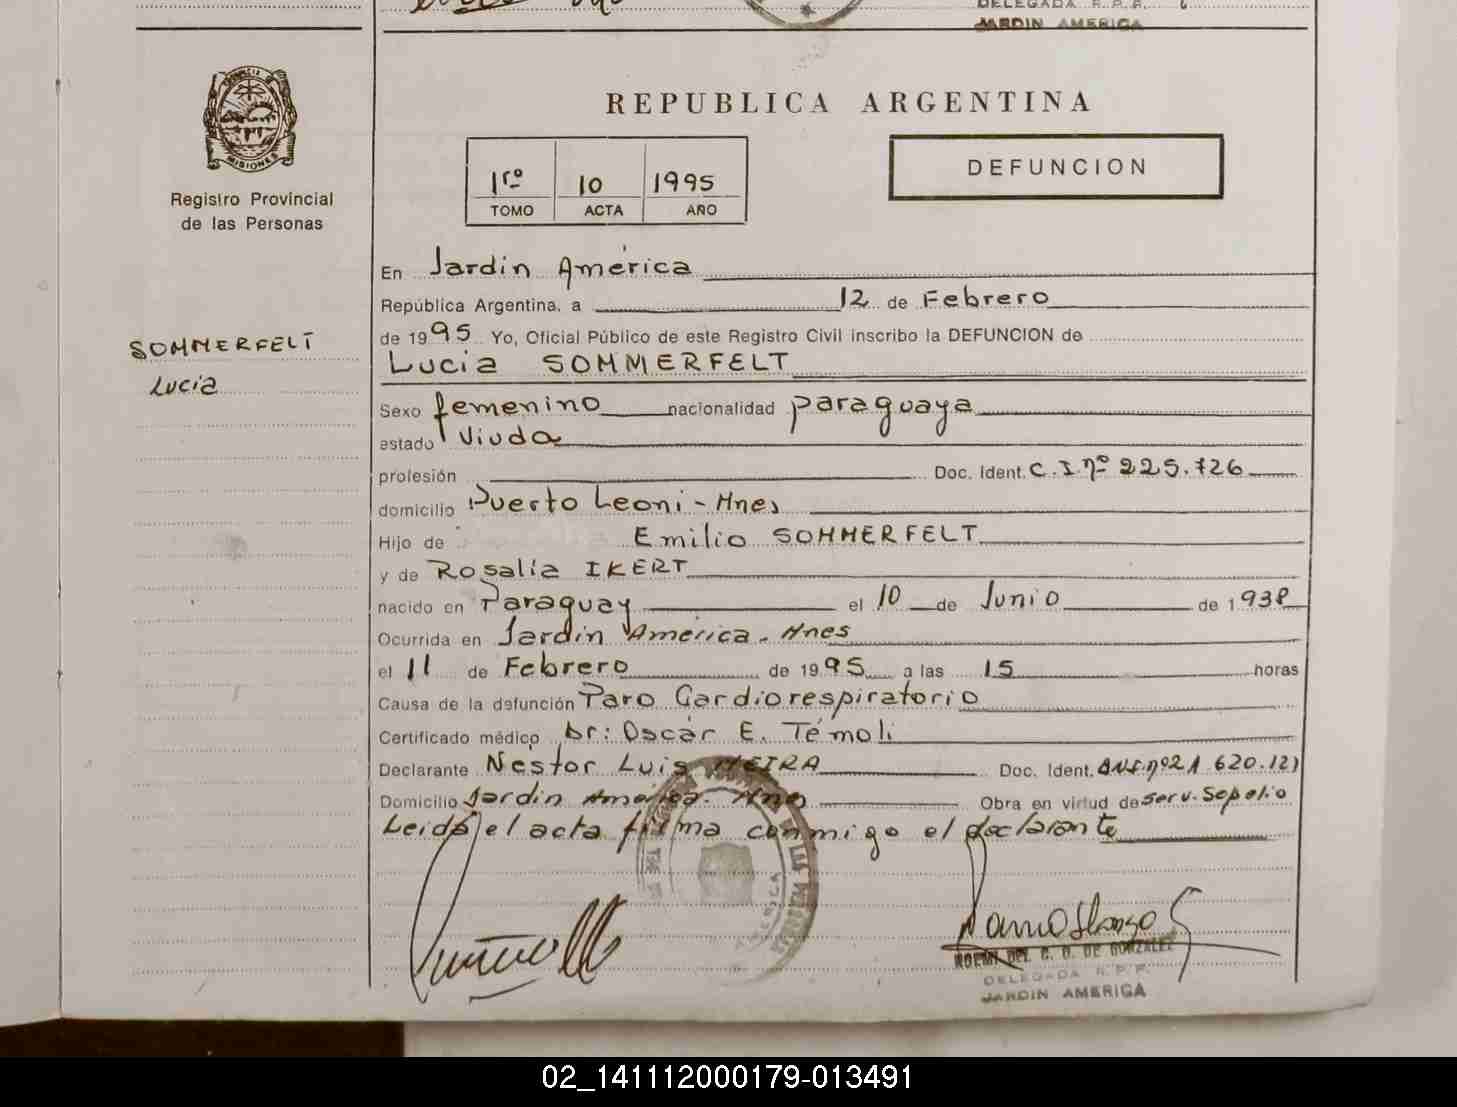 DELEGADA R. P. P.
JARDIN AMERICA
PROVINCIA DE
MISIONES
Registro Provincial
de las Personas
REPUBLICA ARGENTINA
1ro 10 1995
TOMO ACTA AÑO
DEFUNCION
SOMMERFELT
Lucia
En Jardin América
República Argentina, a 12 de Febrero
de 1995 Yo, Oficial Público de este Registro Civil inscribo la DEFUNCION de
Lucia SOMMERFELT
Sexo femenino nacionalidad paraguaya
estado Viuda
profesión Doc. Ident. C.I.nº 225.726
domicilio Puerto Leoni - Mnes
Hijo de Emilio SOMMERFELT
y de Rosalia IKERT
nacido en Paraguay el 10 de Junio de 1938
Ocurrida en Jardin América. Mnes
el 11 de Febrero de 1995 a las 15 horas
Causa de la defunción Paro Cardiorespiratorio
Certificado médico Dr: Oscar E. Témoli
Declarante Nestor Luis MEIRA Doc. Ident. D.N.I. nº 21 620.121
Domicilio Jardin América. Mnes Obra en virtud de Serv. Sepelio
Leida el acta firma conmigo el declarante
NOEMI DEL C. D. DE GONZALEZ
DELEGADA R. P. P.
JARDIN AMERICA
02_141112000179-013491